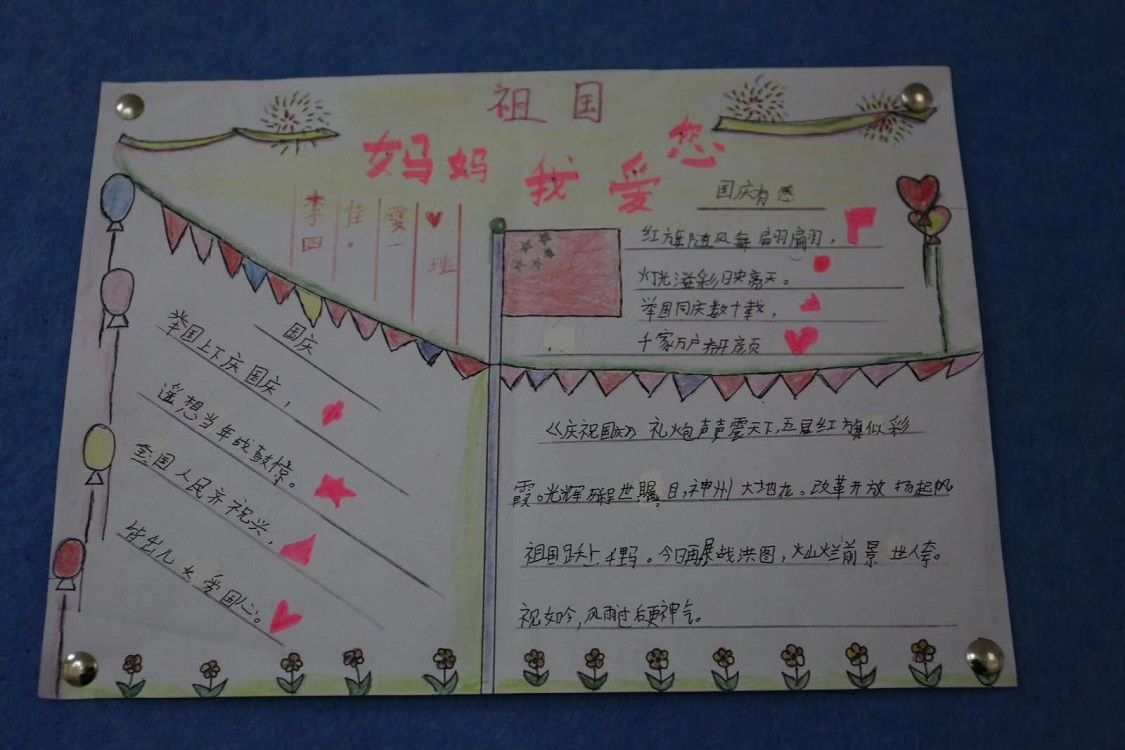 祖国
妈妈我爱您
李佳雯♥
四。一班
国庆有感
红旗随风舞翩翩,
灯光溢彩映亮天。
举国同庆数十载,
千家万户齐开颜
国庆
举国上下庆国庆,
遥想当年战鼓惊。
全国人民齐祝兴,
华出儿女爱国心。
《庆祝国庆》礼炮声声震天下,五星红旗似彩
霞。光辉历程世瞩目,神州大地在。改革开放扬起帆
祖国跃上千里马。今日再展战洪图,灿烂前景世人夸。
祝如今,风雨过后更神气。